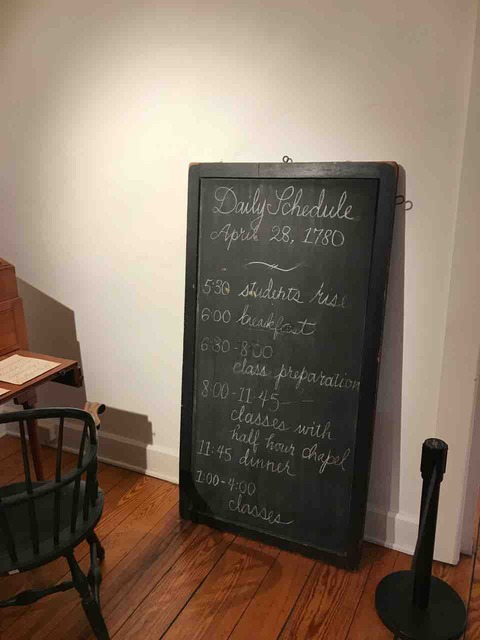 Daily Schedule
April 28, 1780
5:30 students rise
6:00 breakfast
6:30-8:00
class preparation
8:00-11:45
classes with
half hour chapel
11:45 dinner
1:00-4:00
classes